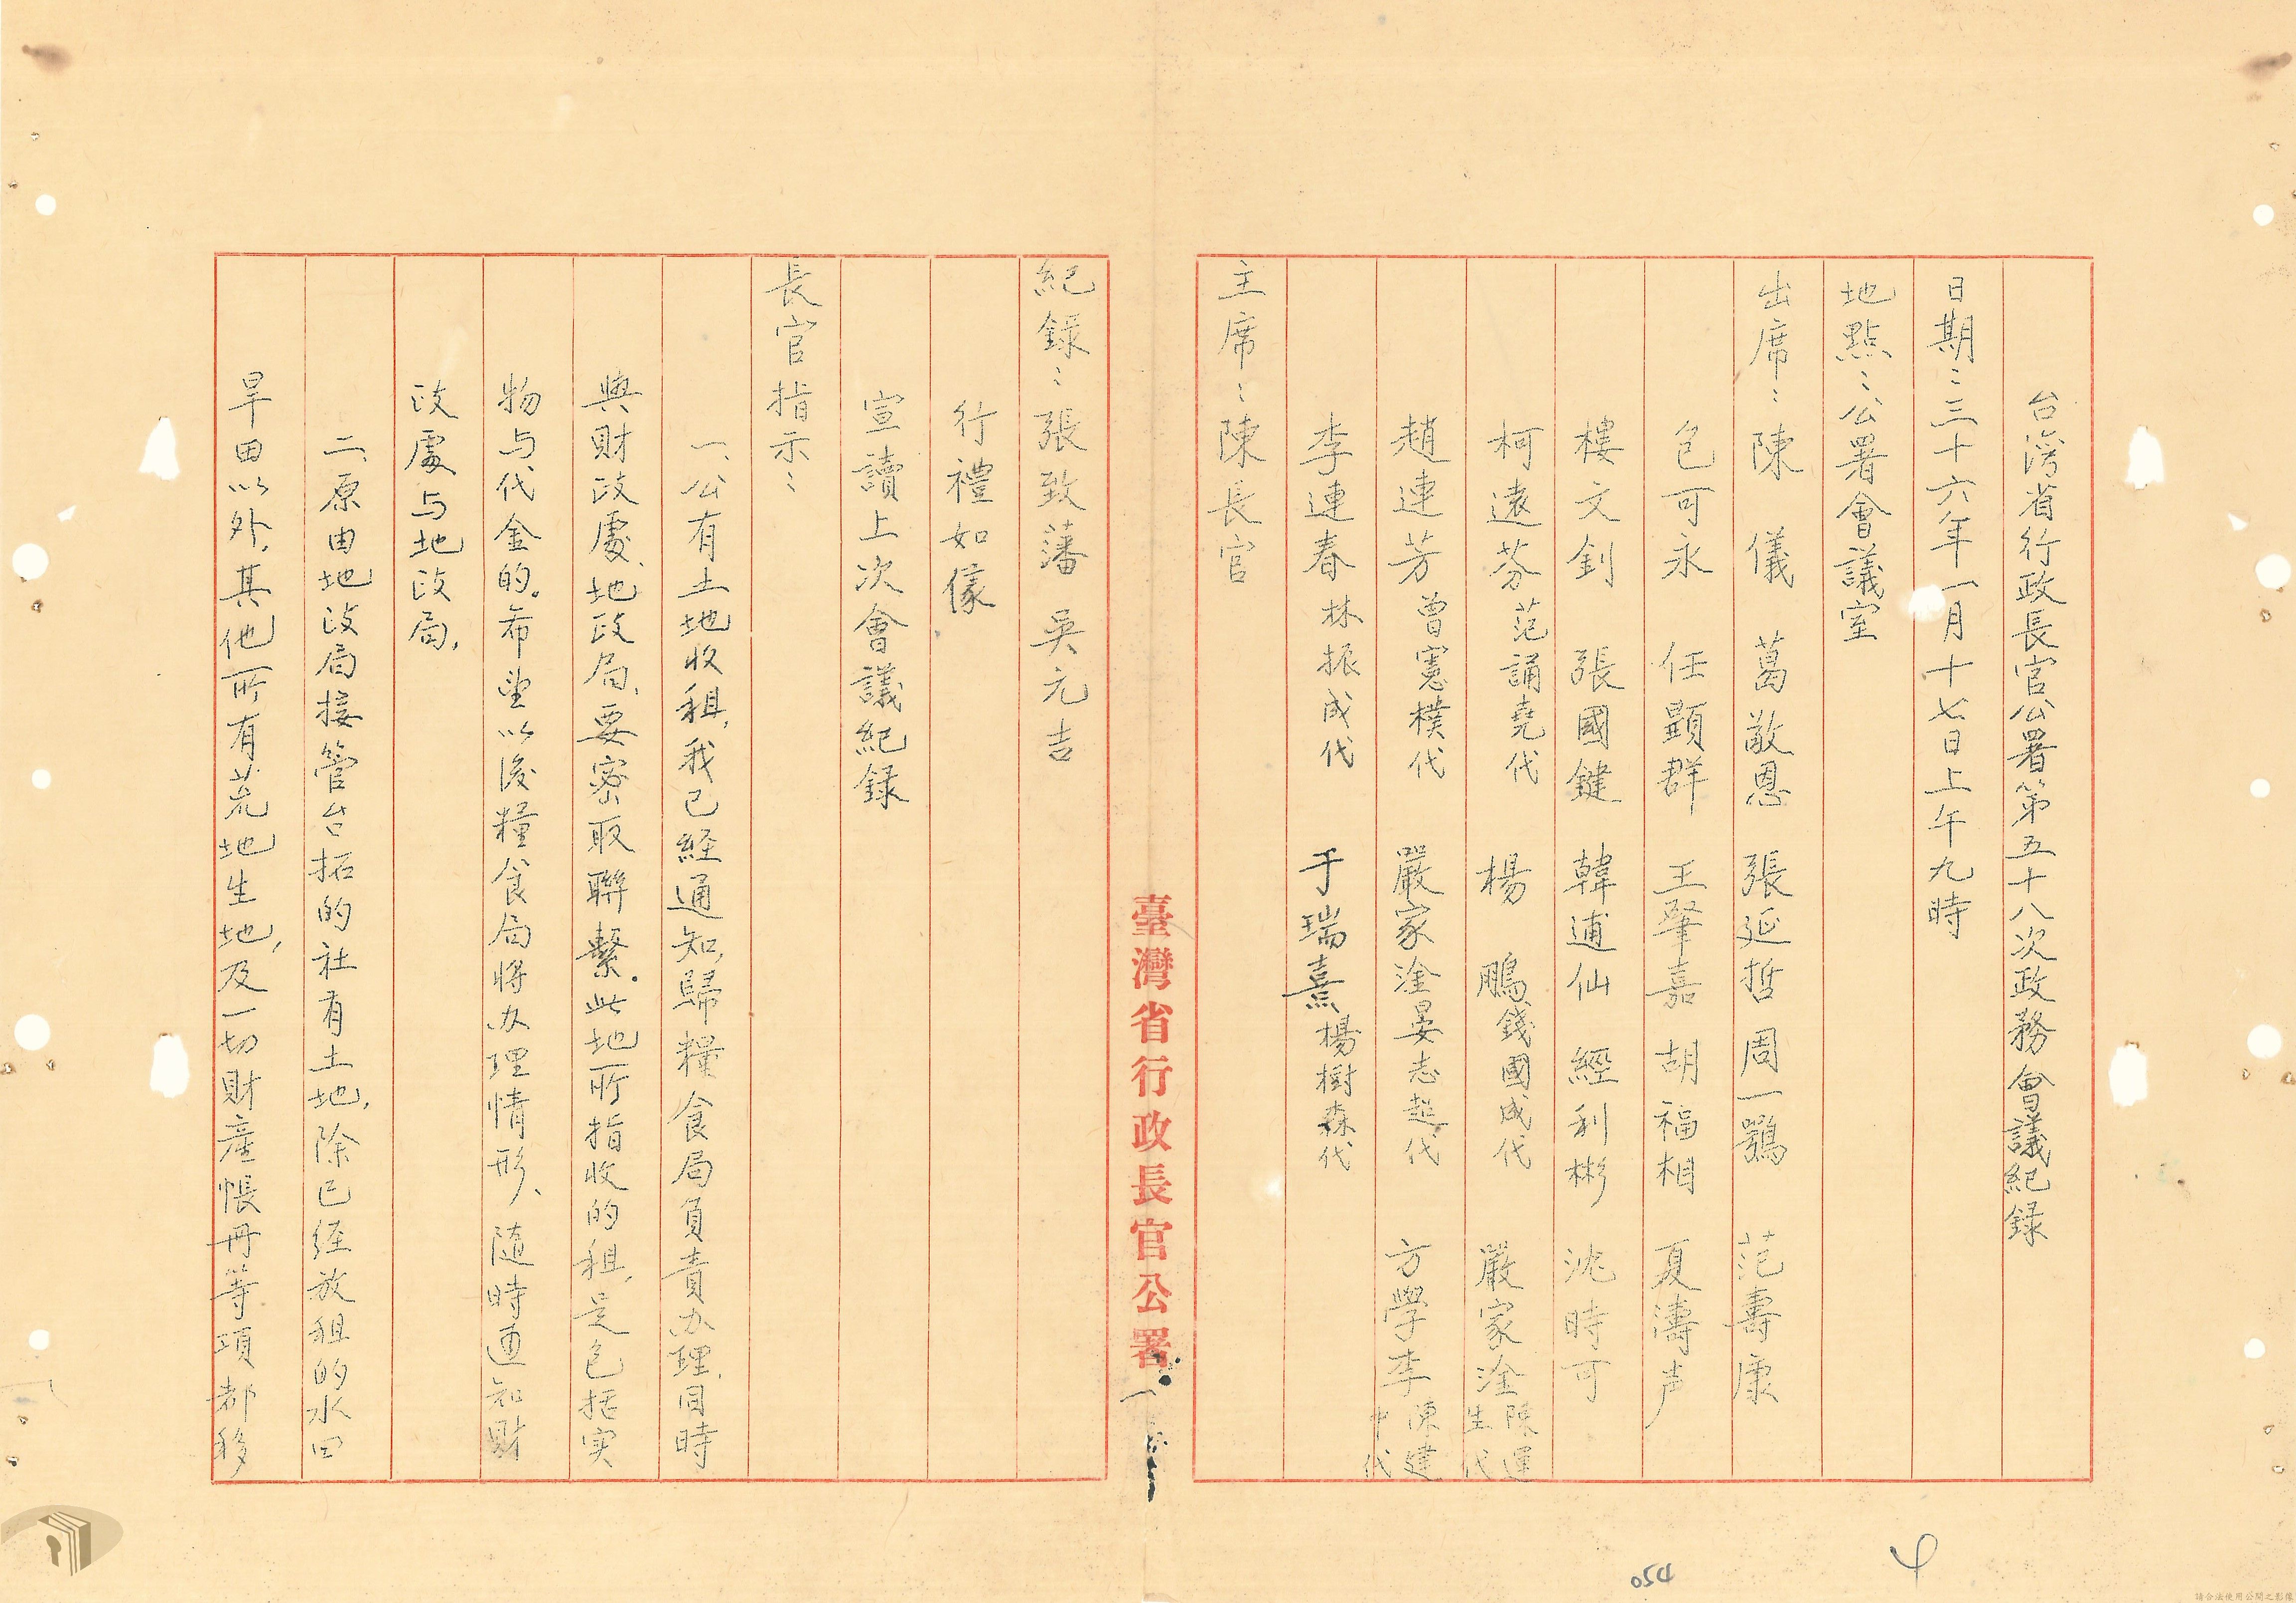 台湾省行政長官公署第五十八次政務會議紀録
日期：三十六年一月十七日上午九時
地點：公署會議室
出席：陳　儀　葛敬恩　張延哲　周一鶚　范壽康
包可永　任顯群　王肇嘉　胡福相　夏濤声
樓文釗　張國鍵　韓逋仙　經利彬　沈時可
柯遠芬 范誦堯代　楊　鵬 錢國成代　嚴家淦 陳運生代
趙連芳 曾憲樸代　嚴家淦 晏志超代　方學李 陳建中代
李連春 林振成代　于瑞熹 楊樹森代
主席：陳長官
臺灣省行政長官公署
一
紀錄：張致藩　吳元吉
行禮如儀
宣讀上次會議紀録
長官指示：
一、公有土地收租，我已經通知，歸糧食局負責办理，同時
與財政處、地政局，要密取聯繫。此地所指收的租，是包括实
物与代金的。希望以後糧食局將办理情形、随時通知財
政處与地政局，
二、原由地政局接管台拓的社有土地，除已经放租的水田
旱田以外，其他所有荒地生地，及一切財産帳冊等項都移
054
請合法使用公開之影像